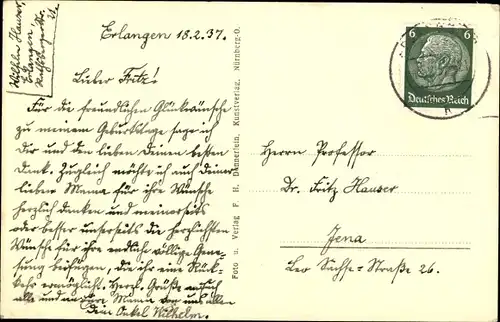 Wilhelm Hauser,
Erlangen
Erlangen 18.2.37.
Lieber Fritz!
Für die freundlichen Glückwünsche
zu meinem Geburtstage sage ich
Dir und den lieben Deinen besten
Dank. Zugleich möchte ich auch Deiner
lieben Mama für ihre Wünsche
herzlich danken und meinerseits
oder besser unserseits die herzlichsten
Wünsche für ihre endliche völlige Gene-
sung beifügen, die ihr eine Rück-
kehr ermöglicht. Herzl. Grüße an
alle und Mama von uns allen
Dein Onkel Wilhelm.
Foto u. Verlag F. H. Dannerlein, Kunstverlag, Nürnberg-O.
6 6
Deutsches Reich
Herrn Professor
Dr. Fritz Hauser
Jena
Leo Sachse-Straße 26.